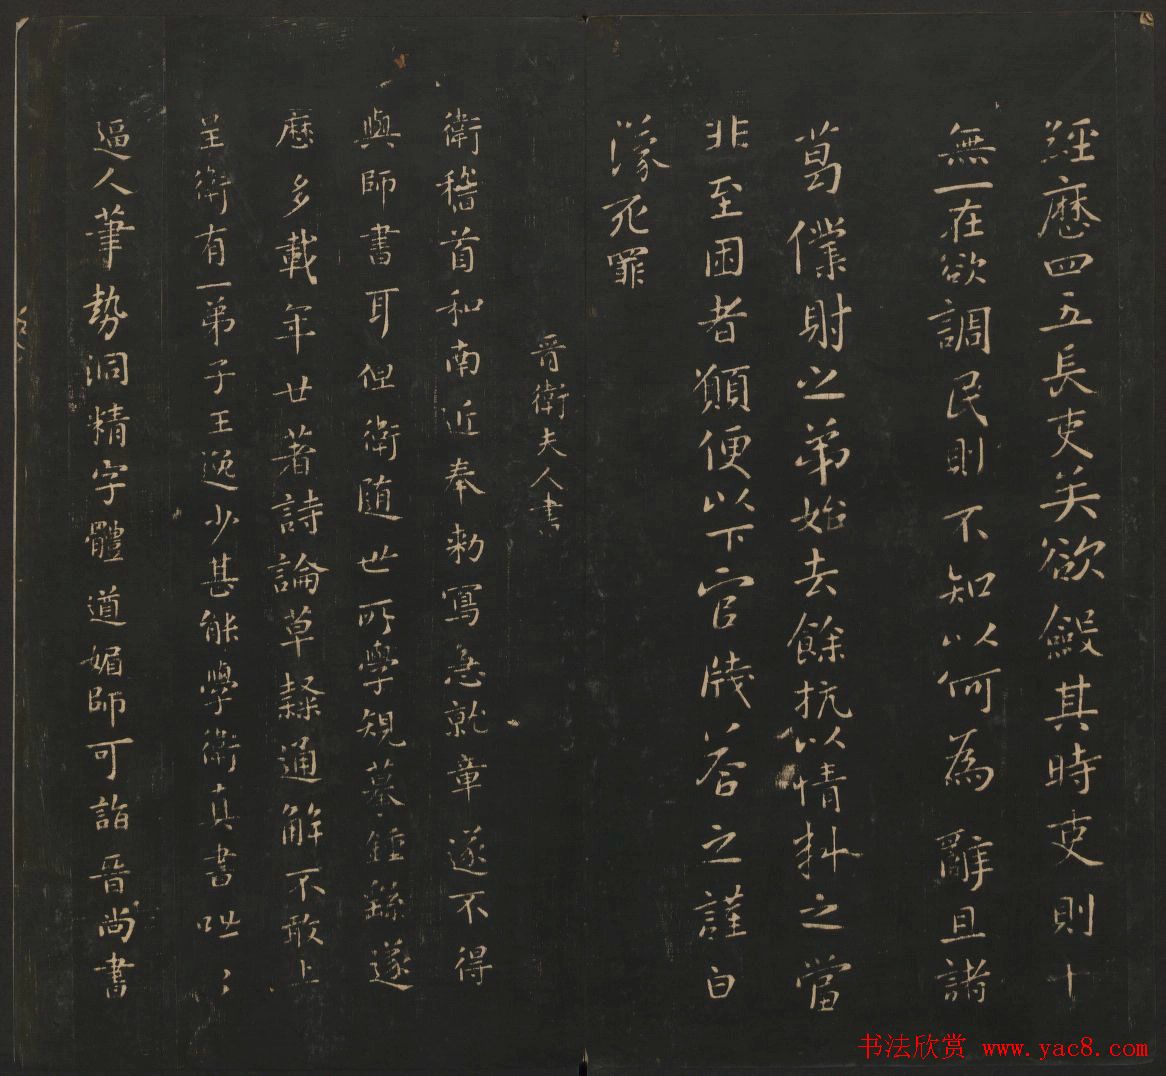 經歷四五長吏矣欲斂其時吏則十
無一在欲調民則不知以何為辭且諸
葛僕射之弟始去餘杭以情料之當
非至困者願便以下官牋答之謹白
濛死罪
晉衛夫人書
衛稽首和南近奉勅寫急就章遂不得
與師書耳但衛隨世所學規摹鍾繇遂
歷多載年廿著詩論草隸通解不敢上
呈衛有一弟子王逸少甚能學衛真書咄〻
逼人筆勢洞精字體遒媚師可詣晉尚書
书法欣赏 www.yac8.com